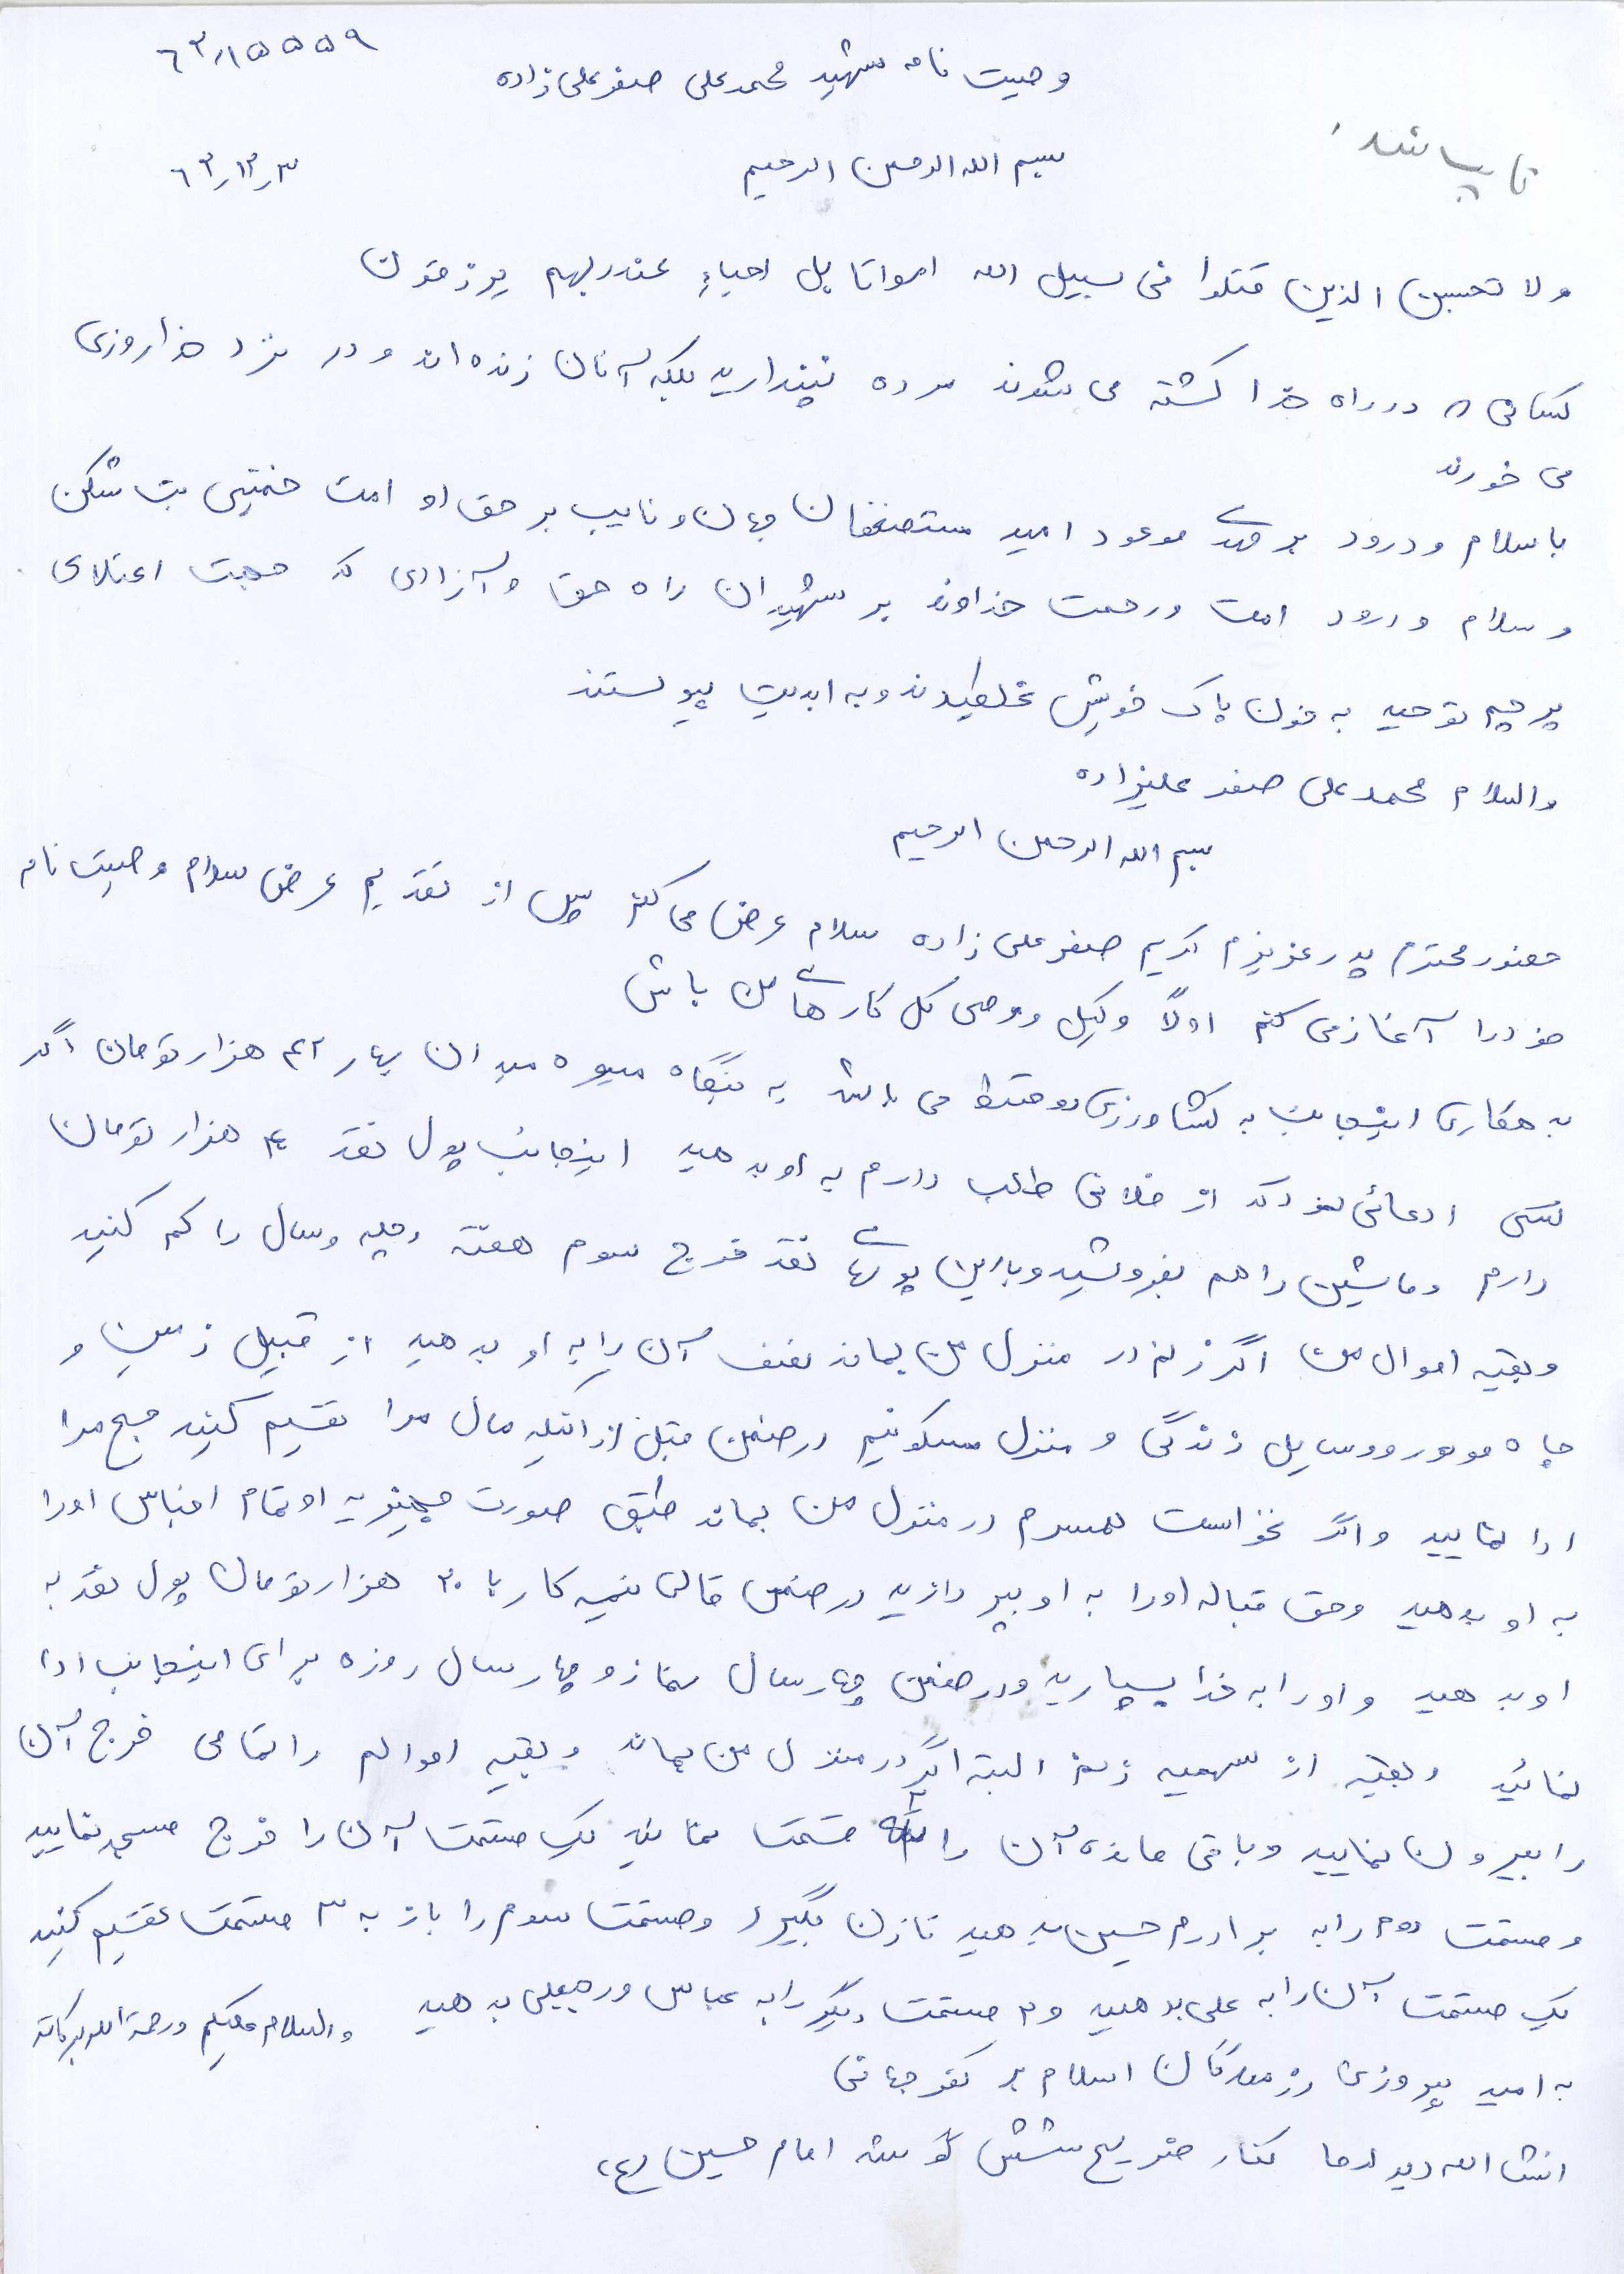 ۶۳٫۱۵۵۵۹
وصیت نامه شهید محمدعلی صفرعلی زاده
تایپ شد
بسم الله الرحمن الرحیم
۶۳٫۱۲٫۳
ولا تحسبن الذین قتلوا فی سبیل الله امواتا بل احیاء عندربهم یرزقون
کسانی که درراه خدا کشته می شوند مرده نپندارید بلکه آنان زنده اند و در نزد خدا روزی
می خورند
باسلام ودرود بر مهدی موعود امید مستضعفان جهان و نایب بر حق او امت خمینی بت شکن
و سلام ودرود امت ورحمت خداوند بر شهیدان راه حق و آزادی که جهت اعتلای
پرچم توحید به خون پاک خویش غلطیدند و به ابدیت پیوستند
والسلام محمدعلی صفر علیزاده
بسم الله الرحمن الرحیم
حضور محترم پدر عزیزم کریم صفرعلی زاده سلام عرض می کنم پس از تقدیم عرض سلام وصیت نامه
خود را آغاز می کنم اولاً وکیل ووصی کل کارهای من باش
بدهکاری اینجانب به کشاورزی دوقسط می باشد به بنگاه میوه میدان بهار ۴۲ هزار تومان اگر
کسی ادعائی نمود که از فلانی طلب دارم به او بدهید اینجانب پول نقد ۴۰ هزار تومان
دارم وماشین راهم بفروشید وبااین پولهای نقد خرج سوم هفته وچله وسال را کم کنید
وبقیه اموال من اگر زنم در منزل من بماند نصف آن را به او بدهید از قبیل زمین و
چاه موتور ووسایل زندگی و منزل مسکونیم درضمن قبل از اینکه مال مرا تقسیم کنید حج مرا
ادا نمایید واگر نخواست همسرم در منزل من بماند طبق صورت جهیزیه او تمام اجناس اورا
به او بدهید وحق قباله اورا به او بپردازید درضمن قالی نیمه کار با ۲۰ هزارتومان پول نقد به
اوبدهید واورا به خدا بسپارید ودرضمن چهارسال نماز و چهارسال روزه برای اینجانب ادا
نمائید وبقیه از سهمیه زنم البته اگر در منزل من بماند وبقیه اموالم راتمامی خرج آن
رابیرون نمایید وباقی مانده آن را ۳ قسمت نمائید یک قسمت آن را خرج مسجد نمایید
وقسمت دوم رابه برادرم حسین بدهید تازن بگیرد وقسمت سوم را باز به ۳ قسمت تقسیم کنید
یک قسمت آن رابه علی بدهید و۲ قسمت دیگر رابه عباس ورجبعلی بدهید والسلام علیکم ورحمة الله وبرکاته
به امید پیروزی رزمندگان اسلام بر کفر جهانی
انشاالله دیدارما کنار ضریح شش گوشه امام حسین (ع)